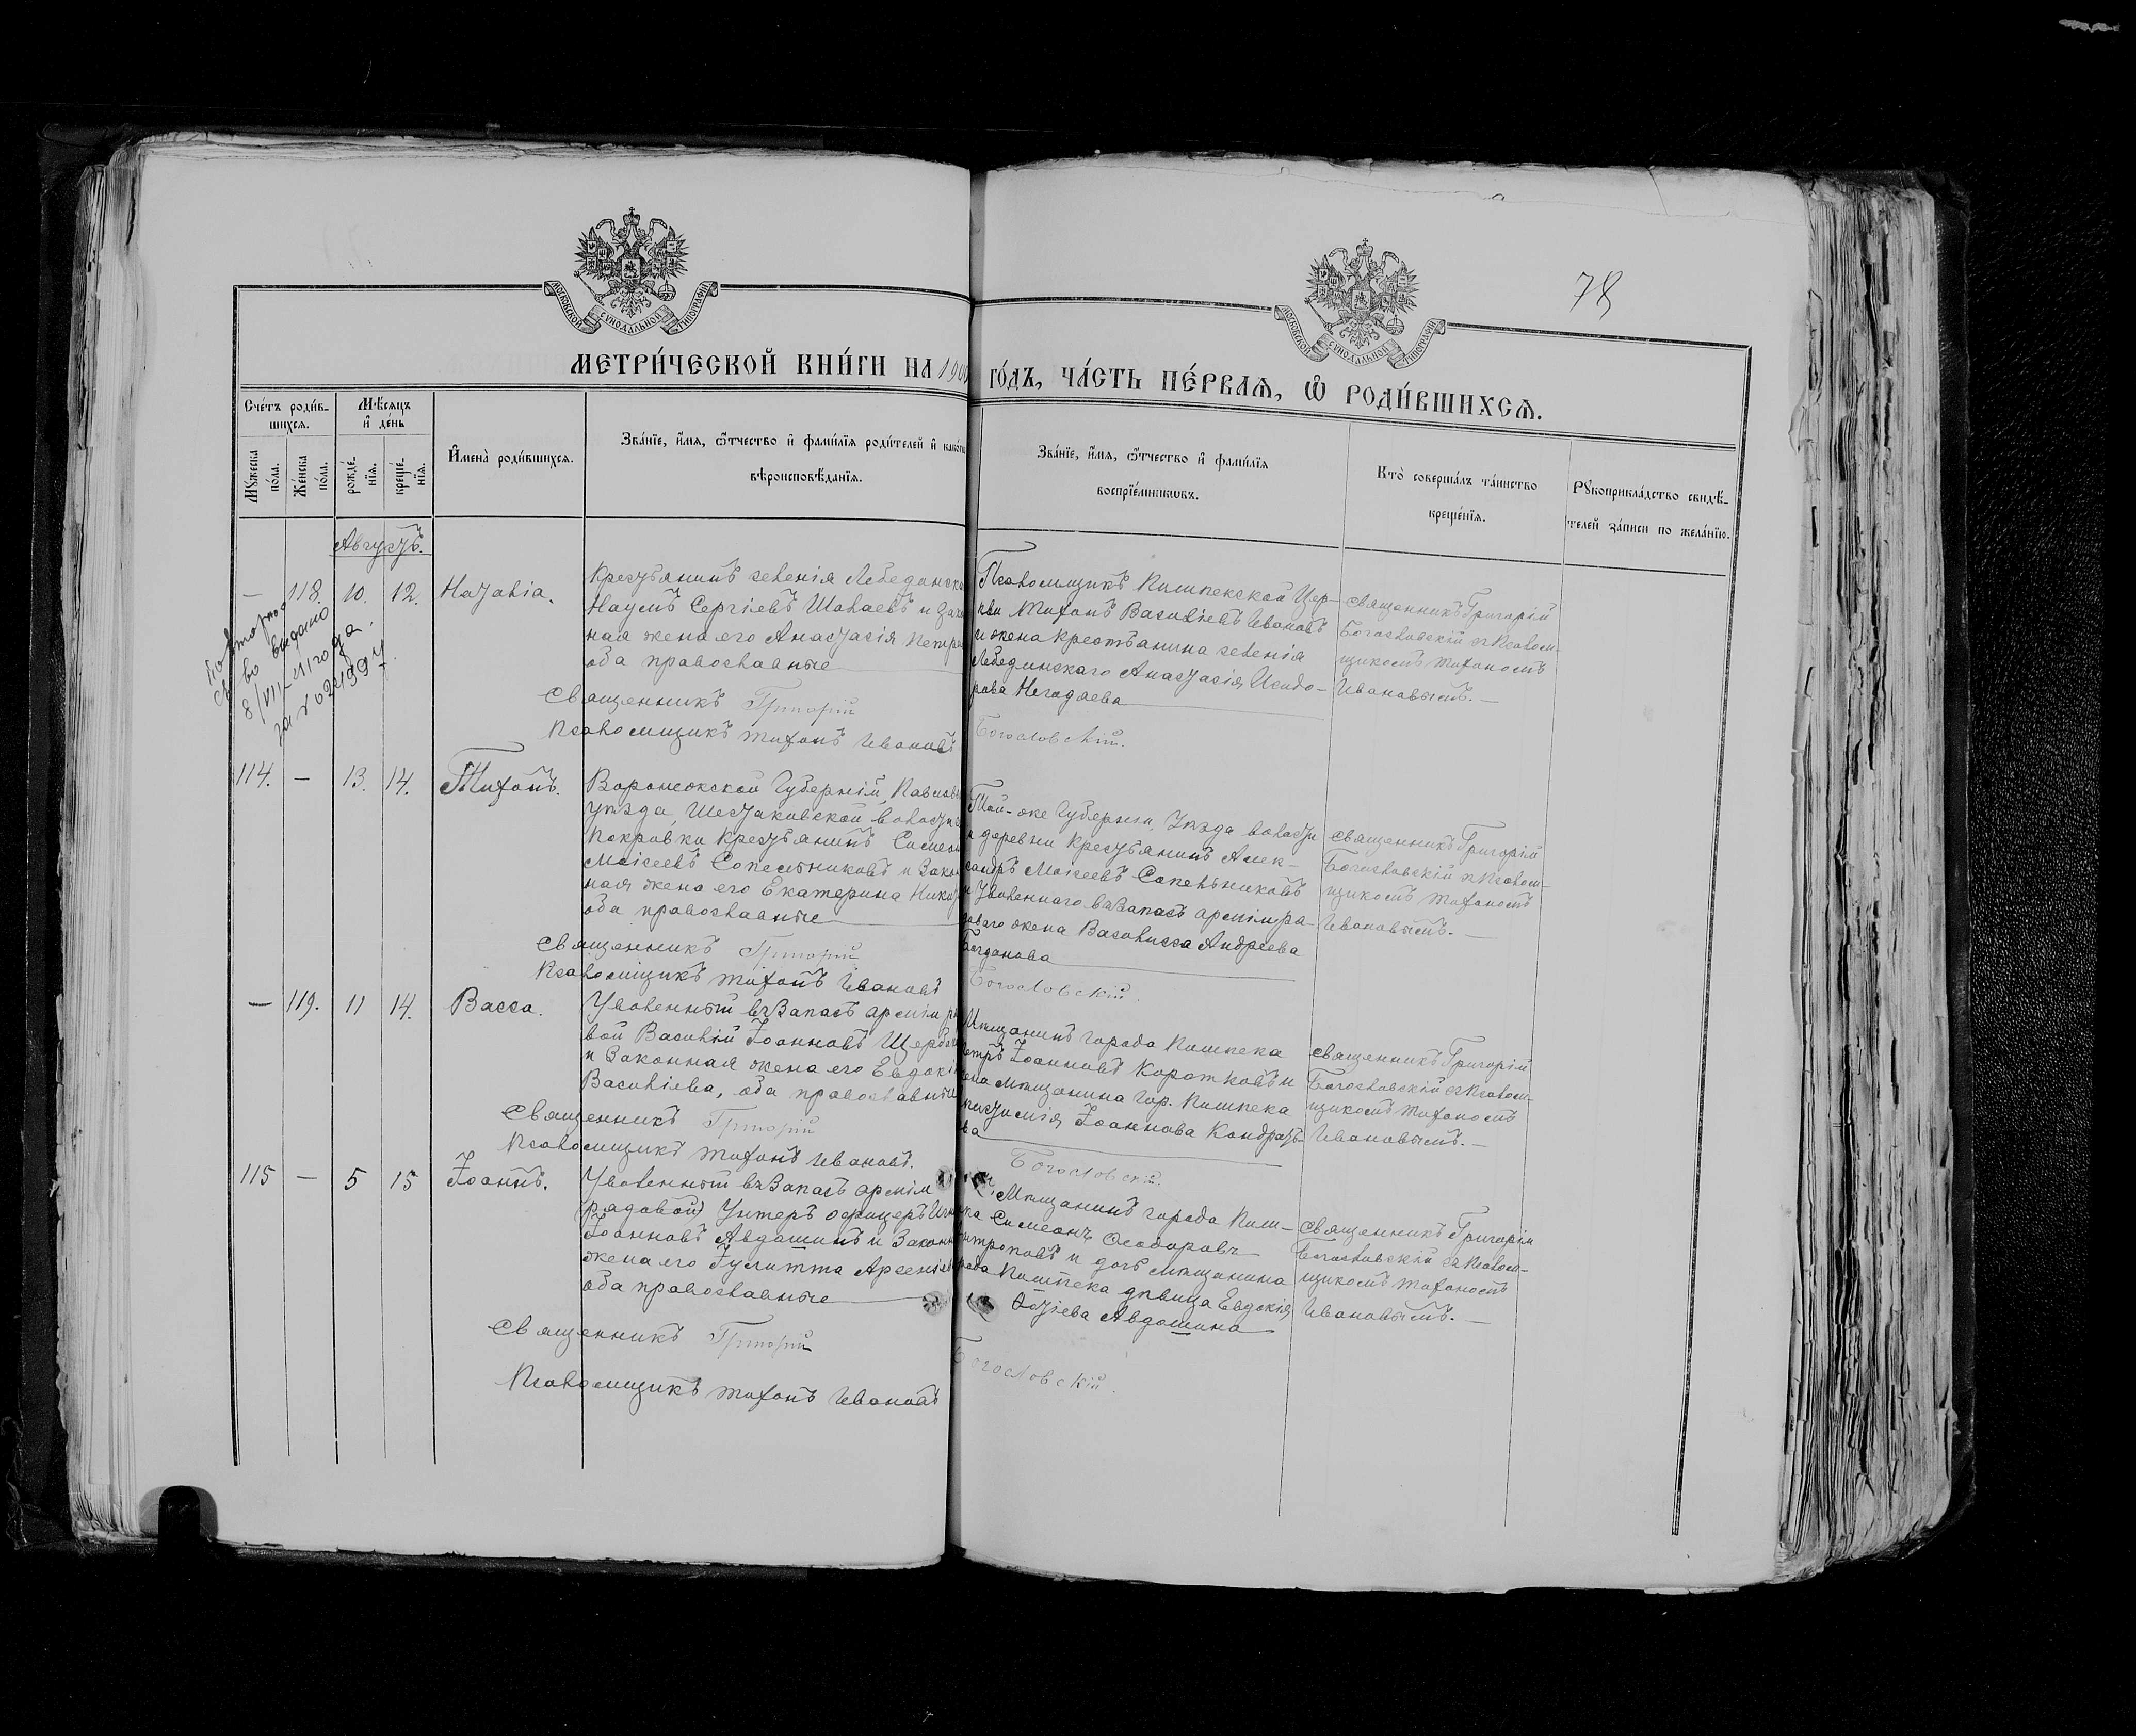 78
МОСКОВСКОЙ СѴНОДАЛЬНОЙ ТИПОГРАФІИ
МОСКОВСКОЙ СѴНОДАЛЬНОЙ ТИПОГРАФІИ
МЕТРИ́ЧЕСКОЙ КНИ́ГИ НА 1900 ГО́ДЪ, ЧА́СТЬ ПЕ́РВАѦ, Ѡ҆ РОДИ́ВШИХСѦ.
Сче́тъ роди́в-
шихсѧ.
Мꙋжеска
по́ла.
Же́нска
по́ла.
Мѣ́сѧцъ
и҆ де́нь
рожде́-
нїѧ.
креще́-
нїѧ.
И҆мена̀ роди́вшихсѧ.
Зва́нїе, и҆́мѧ, ѻ҆́тчество и҆ фами́лїѧ роди́телей и҆ како́гѡ
вѣроисповѣ́данїѧ.
Зва́нїе, и҆́мѧ, ѻ҆́тчество и҆ фами́лїѧ
воспрїе́мникѡвъ.
Кто̀ соверша́лъ та́инство
креще́нїѧ.
Рꙋкоприкла́дство свидѣ́-
телей за́писи по жела́нїю.
Августъ.
— 118. 10. 12. Наталія.
Повторное
св во выдано
8/VII-41 года.
за №
Крестьянинъ селенія Лебединска
Наумъ Сергіевъ Шалаевъ и зак
ная жена его Анастасія Петро
оба православные
Псаломщикъ Пишпекской Цер-
кви Тихонъ Василіевъ Ивановъ
и жена крестьянина селенія
Лебединскаго Анастасія Исидо-
рова Негодяева
Священникъ Григорій
Богословскій съ Псалом-
щикомъ Тихономъ
Ивановымъ. —
Священникъ Григорій Богословскій.
Псаломщикъ Тихонъ Ивановъ
114. — 13. 14. Тихонъ.
Воронежской Губерніи, Павловс
уѣзда, Шестаковской волости
Покровки Крестьянинъ Симеон
Моісеевъ Сапельниковъ и Зако
ная жена его Екатерина
оба православные
Той-же Губерніи, Уѣзда волости
и деревни Крестьянинъ Алек-
сандръ Моісеевъ Сапельниковъ
и Уволеннаго въ Запасъ арміи ря-
доваго жена Василисса Андреева
Богданова
Священникъ Григорій
Богословскій съ Псалом-
щикомъ Тихономъ
Ивановымъ. —
Священникъ Григорій Богословскій.
Псаломщикъ Тихонъ Ивановъ
— 119. 11 14. Васса.
Уволенный въ Запасъ арміи ря
вой Василій Іоанновъ
и Законная жена его Евдокі
Василіева, оба православные
Мѣщанинъ города Пишпека
Петръ Іоанновъ Коротковъ и
жена мѣщанина гор. Пишпека
Іоаннова Кондрать-
ва
Священникъ Григорій
Богословскій съ Псалом-
щикомъ Тихономъ
Ивановымъ. —
Священникъ Григорій Богословскій.
Псаломщикъ Тихонъ Ивановъ.
115 — 5 15 Іоаннъ.
Уволенный въ Запасъ арміи
(рядовой) Унтеръ офицеръ
Іоанновъ Авдошинъ и Законн
жена его Іулитта Арсеніев
оба православные
Мѣщанинъ города Пиш-
пека Симеонъ Ѳеодоровъ
Митроповъ и дочь мѣщанина
города Пишпека дѣвица Евдокія
Авдошина
Священникъ Григорій
Богословскій съ Псалом-
щикомъ Тихономъ
Ивановымъ. —
Священникъ Григорій Богословскій.
Псаломщикъ Тихонъ Ивановъ